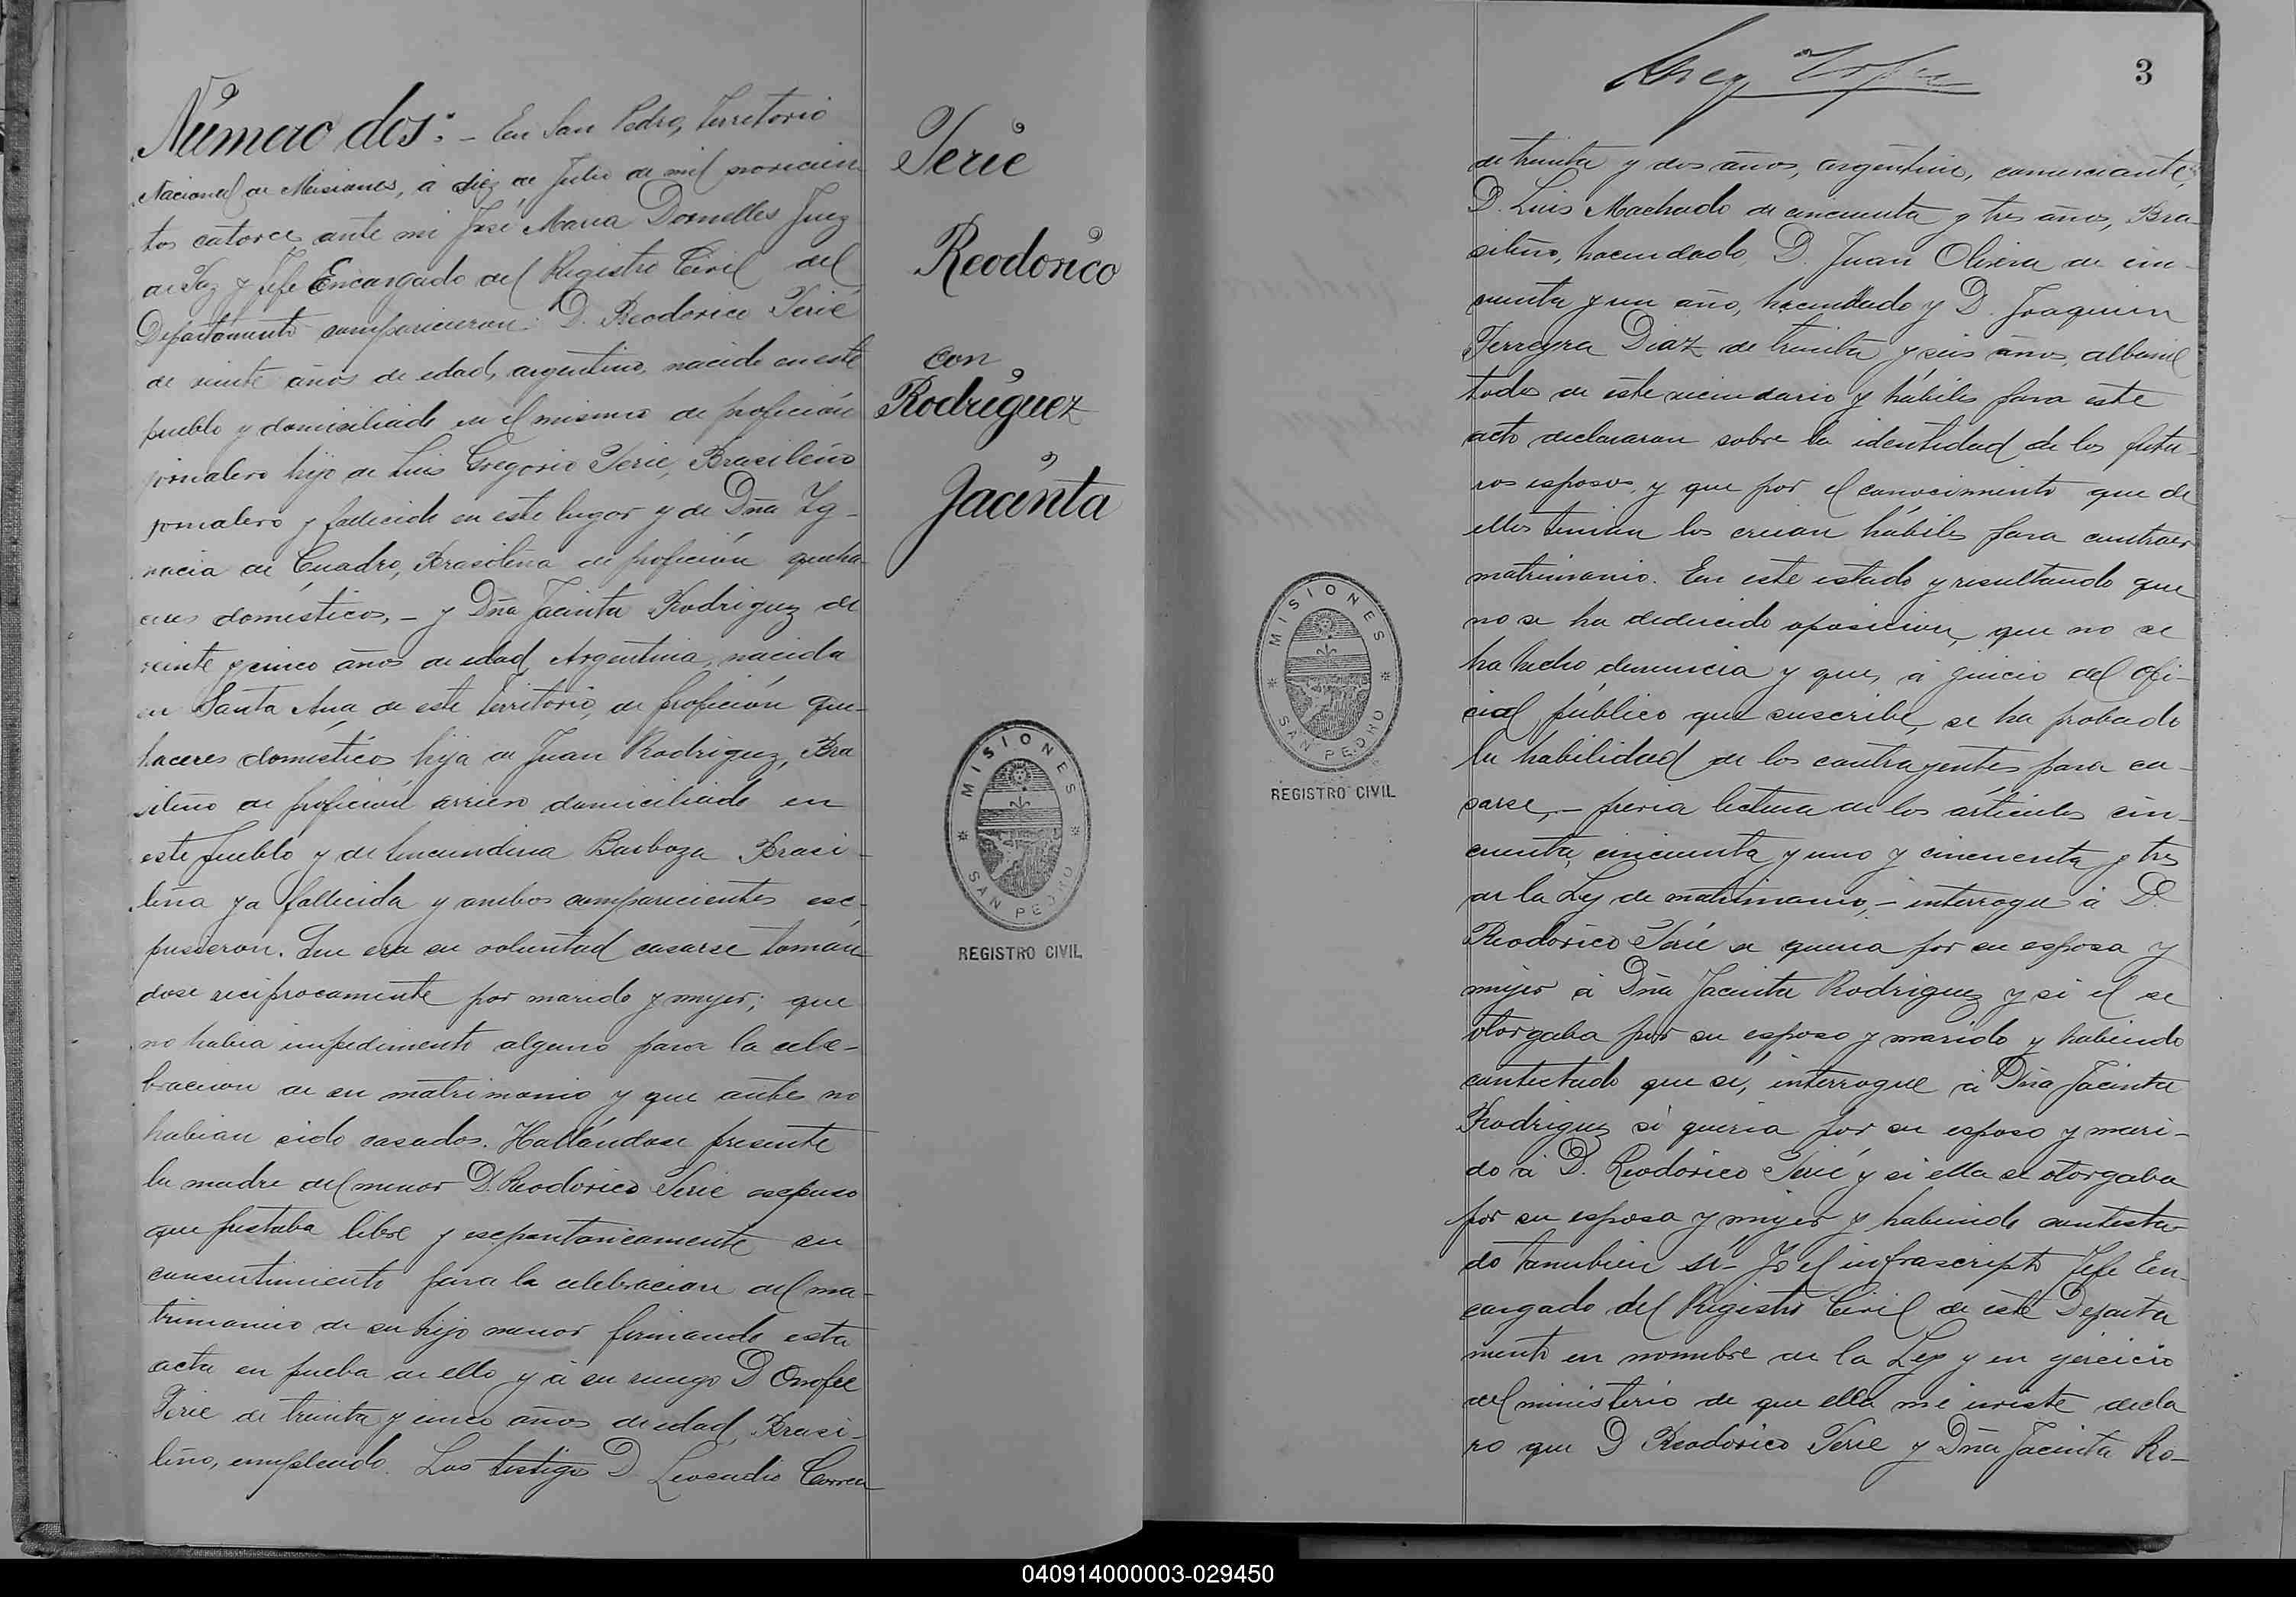 Número dos: - En San Pedro, Territorio
Nacional de Misiones, á diez de Julio de mil novecien
tos catorce, ante mi José Maria Dornelles Juez
de Paz y Jefe Encargado del Registro Civil del
Departamento comparecieron: D. Reodorico Serie
de veinte años de edad, argentino, nacido en este
pueblo y domiciliado en el mismo de profeción
jornalero hijo de Luis Gregorio Serie, Brasileño
jornalero y fallecido en este lugar y de Dña Ig-
nacia de Cuadro, Brasileña de profeción queha-
ceres domésticos, - y Dña Jacinta Rodriguez de
veinte y cinco años de edad, Argentina, nacida
en Santa Ana de este Territorio, de profeción que-
haceres domésticos hija de Juan Rodriguez, Bra
sileño de profeción arriero domiciliado en
este pueblo y de Barboza Brasi-
leña ya fallecida y ambos comparecientes esc-
pusieron. Que era su voluntad casarse tomán
dose reciprocamente por marido y mujer; que
no habia impedimento alguno para la cele-
bracion de su matrimonio y que antes no
habian sido casados. Hallándose presente
la madre del menor D. Reodorico Serie escpuso
que prestaba libre y escpontaneamente su
consentimiento para la celebracion del ma-
trimonio de su hijo menor firmando esta
acta en prueba de ello y á su ruego D Onofre
Serie de treinta y cinco años de edad, Brasi-
leño, empleado. Los testigos D Leocadio Correa
Serie
Reodorico
con
Rodriguez
Jacinta
MISIONES
SAN PEDRO
REGISTRO CIVIL
3
de treinta y dos años, argentino, comerciante,
D. Luis Machado de cincuenta y tres años, Bra-
sileño, hacendado, D. Juan Olivera de cin-
cuenta y un año, hacendado y D. Joaquin
Ferreyra Diaz de treinta y seis años, albañil
todos de este vecindario y hábiles para este
acto declararon sobre la identidad de los futu-
ros esposos, y que por el conocimiento que de
ellos tenian los creian hábiles para contraer
matrimonio. En este estado y resultando que
no se ha deducido oposicion, que no se
ha hecho denuncia y que, á juicio del ofi-
cial público que suscribe, se ha probado
la habilidad de los contrayentes para ca-
sarse, - previa lectura de los artículos cin-
cuenta, cincuenta y uno y cincuenta y tres
de la Ley de matrimonio, - interrogué á D.
Reodorico Serié si queria por su esposa y
mujer á Dña Jacinta Rodriguez y si el se
otorgaba por su esposo y marido y habiendo
contestado que si, interrogué á Dña Jacinta
Rodriguez si queria por su esposo y mari-
do á D. Reodorico Serié y si ella se otorgaba
por su esposa y mujer y habiendo contesta-
do tambien si - Yo el infrascripto Jefe En-
cargado del Registro Civil de este Departa
mento en nombre de la Ley y en ejercicio
del ministerio de que ella me inviste decla
ro que D Reodorico Serie y Dña Jacinta Ro-
MISIONES
SAN PEDRO
REGISTRO CIVIL
040914000003-029450